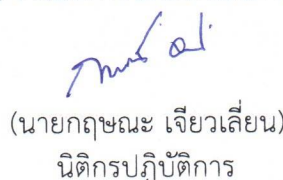 (นายกฤษณะ เจียวเลี่ยน)
นิติกรปฏิบัติการ